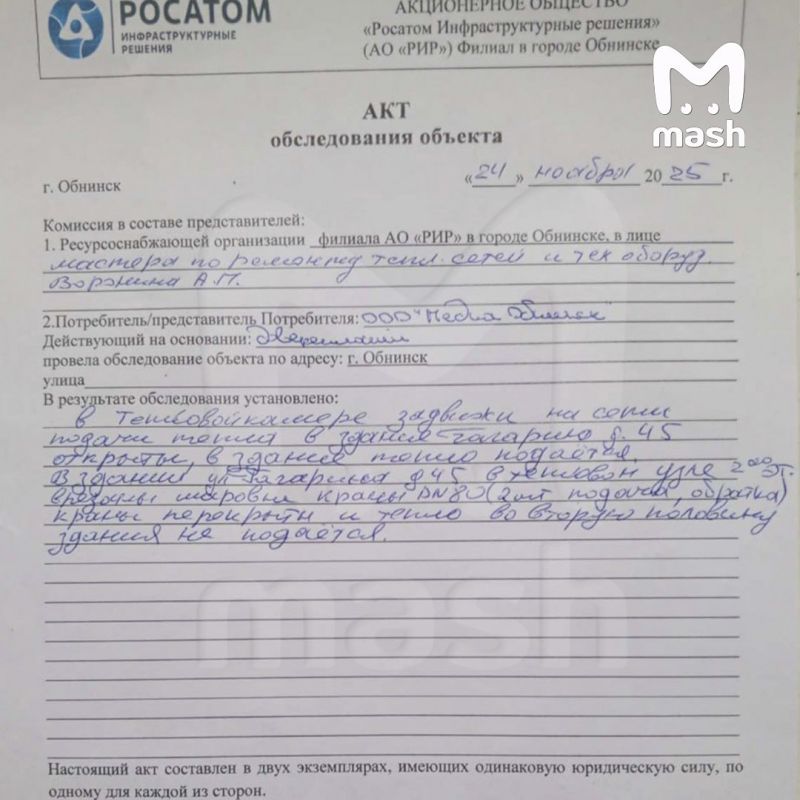 РОСАТОМ
ИНФРАСТРУКТУРНЫЕ
РЕШЕНИЯ
АКЦИОНЕРНОЕ ОБЩЕСТВО
«Росатом Инфраструктурные решения»
(АО «РИР») Филиал в городе Обнинске
mash
АКТ
обследования объекта
г. Обнинск
«24» ноября 2025 г.
Комиссия в составе представителей:
1. Ресурсоснабжающей организации филиала АО «РИР» в городе Обнинске, в лице
мастера по ремонту тепл. сетей и тех оборуд.
Воронина А.П.
2.Потребитель/представитель Потребителя: ООО "Медиа Обнинск"
Действующий на основании:
провела обследование объекта по адресу: г. Обнинск
улица
В результате обследования установлено:
в Тепловой камере задвижки на сети
подачи тепла в здание Гагарина д. 45
открыты, в здание тепло подаётся.
В здании ул. Гагарина д 45 в тепловом узле 2ого эт.
врезаны шаровые краны DN80 (2шт подача, обратка)
краны перекрыты и тепло во вторую половину
здания не подаётся.
mash
Настоящий акт составлен в двух экземплярах, имеющих одинаковую юридическую силу, по
одному для каждой из сторон.